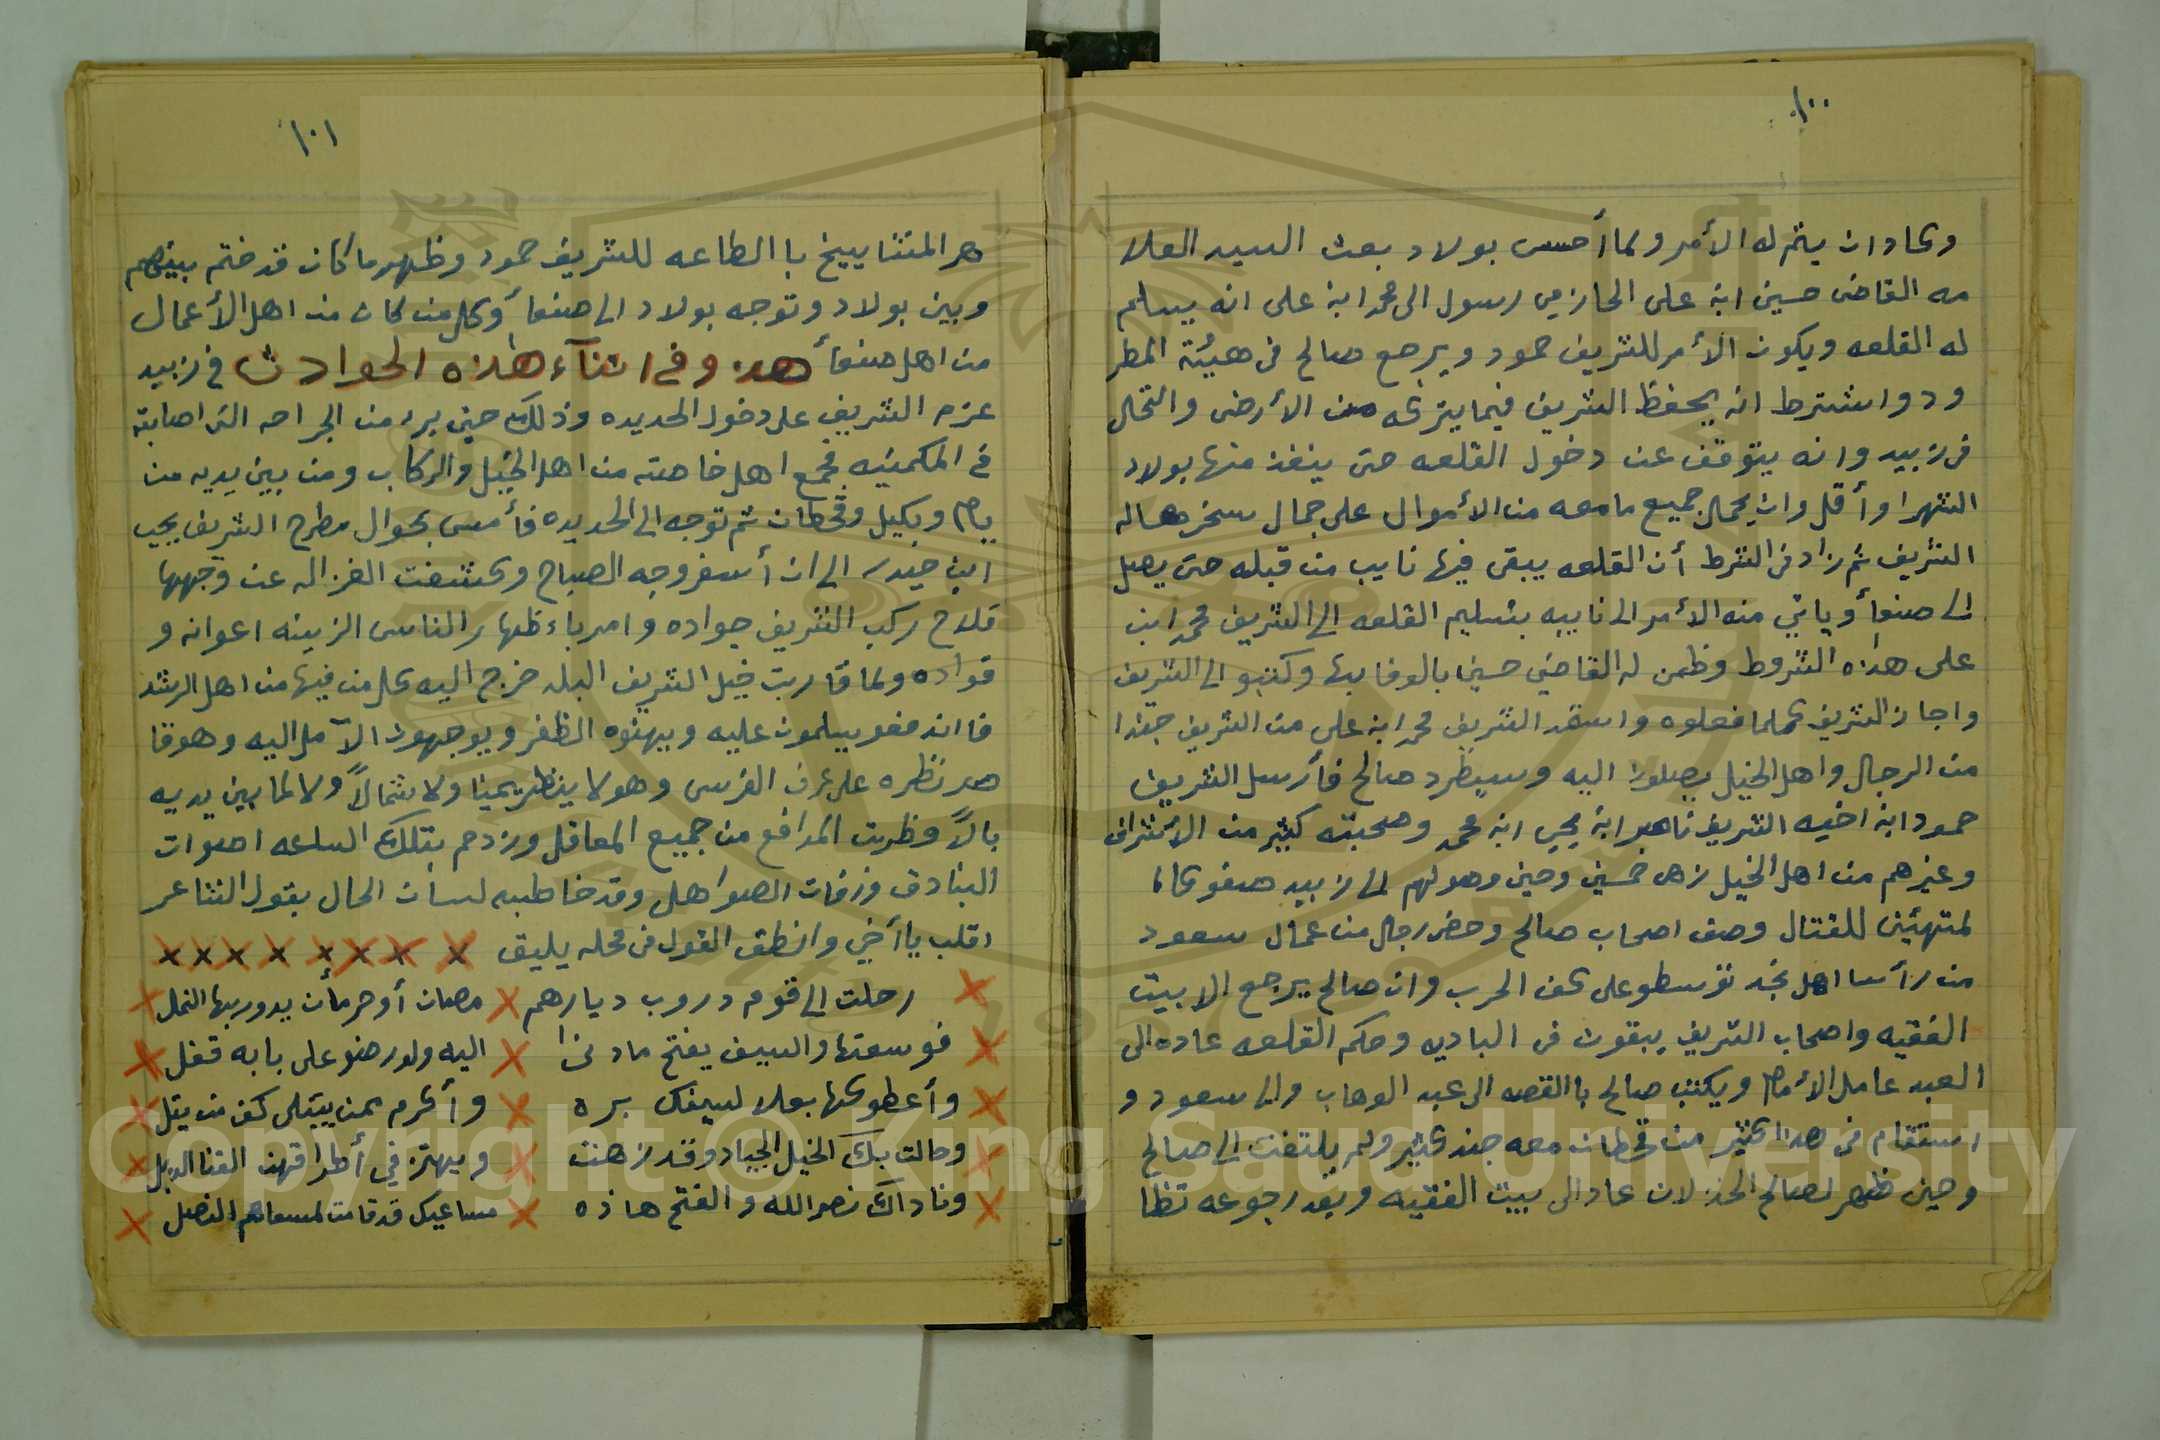 ١٠٠
وكادان يتم له الأمر ولما أحس بولاد بعث السيد العلا
مه القاضى حسين ابنه على الحازمي رسول الى محمد ابنه على انه يسلم
له القلعه ويكون الأمر للشريف حمود ويرجع صالح فى هيئة المطر
ود واشترط انه يحفظ الشريف فيما يتركه من الأرض والنخل
فى زبيد وانه يتوقف عن دخول القلعه حتى ينفذ منها بولاد
الشهرا وأقل وان يحمل جميع مامعه من الأموال على جمال سخرهاله
الشريف ثم زاد فى الشرط أن القلعه يبقى فيها نايب من قبله حتى يصل
الى صنعأ وياتي منه الأمر الى نايبه بتسليم القلعه الى الشريف محمد ابن
على هذه الشروط وظمن له القاضي حسين بالوفا بها وكتبو الى الشريف
واجاز الشريف كلما فعلوه واستمد الشريف محمد ابنه على من الشريف جندا
من الرجال واهل الخيل يصلوا اليه وسيظرد صالح فأرسل الشريف
حمود ابنه اخيه الشريف ناصر ابنه يحي ابنه محمد وصحبته كثير من الأشراف
وغيرهم من اهل الخيل زهى خمسين وحين وصولهم الى زبيد صفو كانا
لمتهيئين للقتال وصف اصحاب صالح وحضر رجال من عمال سعود
من رأسا اهل نجد توسطو على كف الحرب وان صالح يرجع الا بيت
الفقيه واصحاب الشريف يبقون فى الباديه وحكم القلعه عاده الى
العبد عامل الأمام ويكتب صالح باالقصه الى عبد الوهاب والى سعود و
استقام فى هذا كثير من قحطان معه جند كثير ولم يلتفت الى صالح
وحين ظهر لصالح الخذلان عاد الى بيت الفقيه وبعد رجوعه تظا
١٠١
هر المشاييخ باالطاعه للشريف حمود وظهر ما كان قد ختم بينهم
وبين بولاد وتوجه بولاد الى صنعأ وكل من كان من اهل الأعمال
من اهل صنعأ هذه وفى اثنآء هذه الحوادث فى زبيد
عزم الشريف على دخول الحديده وذلك حين برء من الجراحه التى اصابته
فى المكمنيه فجمع اهل خاصته من اهل الخيل والركاب ومن بين يديه من
يام وبكيل وقحطان ثم توجه الى الحديده فأمسى بحوال مطرح الشريف يحيى
ابن حيدر الى ان أسفر وجه الصباح وكشفت الغزاله عن وجهها
قلاح ركب الشريف جواده وامر باءظهار الناس الزينه اعوانه و
قواده ولما قاربت خيل الشريف البلد خرج اليه كل من فيها من اهل الرشد
فااندفعو يسلمون عليه ويهنئوه الظفر ويوجهون الآمل اليه وهوقا
صر نظره على عرف الفرس وهو لا ينظر يمينا ولا شمالاً ولا لما بين يديه
بالاً وظربت المدافع من جميع المعاقل وزدحم بتلك الساعه اصوات
البنادق وزفات الصواهل وقد خاطبه لسان الحال بقول الشاعر
اقلب ياأخي وانطق القول فى محله يليق × × × × × × × ×
× رحلت الى قوم دروب ديارهم × مصان أوحرمأن يدوربها النمل ×
× فوسعتها والسيف يفتح مادنى × اليه ولورضو على بابه قفل ×
× وأعطوكها بعلا لسيفك بره × وأكرم بمن يبتلى كف من يتل ×
× وحالت بك الخيل الجياد وقد زهت × ويهتز في أطرافهن القنا الذبل ×
× وناداك نصر الله والفتح هاذه × مساعيك قد قامت لمسعاهم النصل ×
Copyright © King Saud University
1957